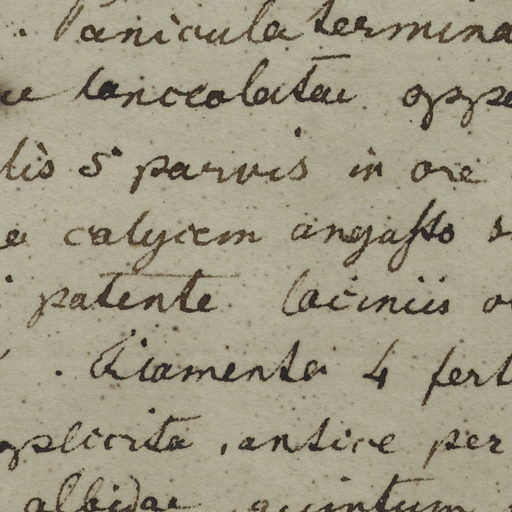 . Panicula termina
lanceolatae oppo
lis 5 parvis in ore
calycem angusto
patente laciniis o
. Filamenta 4 fert
plicita , antice per
albidae , quintum